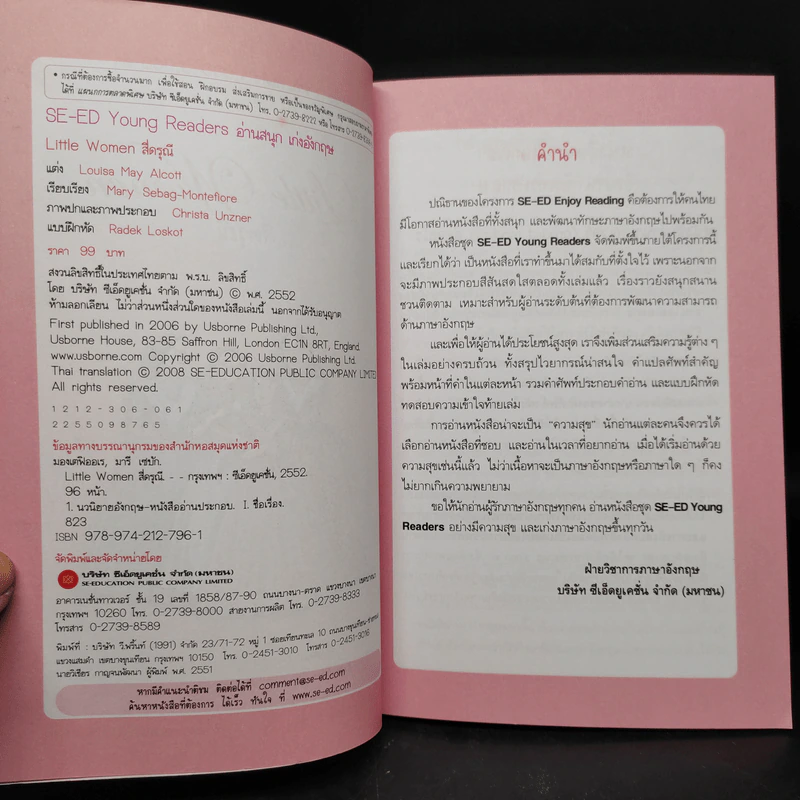 • กรณีที่ต้องการซื้อจำนวนมาก เพื่อใช้สอน ฝึกอบรม ส่งเสริมการขาย หรือเป็นของขวัญพิเศษ กรุณาสอบถาม
ได้ที่ แผนกการตลาดพิเศษ บริษัท ซีเอ็ดยูเคชั่น จำกัด (มหาชน) โทร. 0-2739-8222 หรือ โทรสาร
SE-ED Young Readers อ่านสนุก เก่งอังกฤษ
Little Women สี่ดรุณี
แต่ง Louisa May Alcott
เรียบเรียง Mary Sebag-Montefiore
ภาพปกและภาพประกอบ Christa Unzner
แบบฝึกหัด Radek Loskot
ราคา 99 บาท
สงวนลิขสิทธิ์ในประเทศไทยตาม พ.ร.บ. ลิขสิทธิ์
โดย บริษัท ซีเอ็ดยูเคชั่น จำกัด (มหาชน) © พ.ศ. 2552
ห้ามลอกเลียน ไม่ว่าส่วนหนึ่งส่วนใดของหนังสือเล่มนี้ นอกจากได้รับอนุญาต
First published in 2006 by Usborne Publishing Ltd.,
Usborne House, 83-85 Saffron Hill, London EC1N 8RT, England.
www.usborne.com Copyright © 2006 Usborne Publishing Ltd.
Thai translation © 2008 SE-EDUCATION PUBLIC COMPANY LIMITED
All rights reserved.
1 2 1 2 - 3 0 6 - 0 6 1
2 2 5 5 0 9 8 7 6 5
ข้อมูลทางบรรณานุกรมของสำนักหอสมุดแห่งชาติ
มองเตฟิออเร, มารี เซบัก.
Little Women สี่ดรุณี. - - กรุงเทพฯ : ซีเอ็ดยูเคชั่น, 2552.
96 หน้า.
1. นวนิยายอังกฤษ-หนังสืออ่านประกอบ. I. ชื่อเรื่อง.
823
ISBN 978-974-212-796-1
จัดพิมพ์และจัดจำหน่ายโดย
บริษัท ซีเอ็ดยูเคชั่น จำกัด (มหาชน)
SE-EDUCATION PUBLIC COMPANY LIMITED
อาคารเนชั่นทาวเวอร์ ชั้น 19 เลขที่ 1858/87-90 ถนนบางนา-ตราด แขวงบางนา เขตบางนา
กรุงเทพฯ 10260 โทร. 0-2739-8000 สายงานการผลิต โทร. 0-2739-8333
โทรสาร 0-2739-8589
พิมพ์ที่ : บริษัท วี.พริ้นท์ (1991) จำกัด 23/71-72 หมู่ 1 ซอยเทียนทะเล 10 ถนนบางขุนเทียน-ชายทะเล
แขวงแสมดำ เขตบางขุนเทียน กรุงเทพฯ 10150 โทร. 0-2451-3010 โทรสาร 0-2451-3016
นายวิเชียร กาญจนพัฒนา ผู้พิมพ์ พ.ศ. 2551
หากมีคำแนะนำติชม ติดต่อได้ที่ comment@se-ed.com
ค้นหาหนังสือที่ต้องการ ได้เร็ว ทันใจ ที่ www.se-ed.com
คำนำ
ปณิธานของโครงการ SE-ED Enjoy Reading คือต้องการให้คนไทย
มีโอกาสอ่านหนังสือที่ทั้งสนุก และพัฒนาทักษะภาษาอังกฤษไปพร้อมกัน
หนังสือชุด SE-ED Young Readers จัดพิมพ์ขึ้นภายใต้โครงการนี้
และเรียกได้ว่า เป็นหนังสือที่เราทำขึ้นมาได้สมกับที่ตั้งใจไว้ เพราะนอกจาก
จะมีภาพประกอบสีสันสดใสตลอดทั้งเล่มแล้ว เรื่องราวยังสนุกสนาน
ชวนติดตาม เหมาะสำหรับผู้อ่านระดับต้นที่ต้องการพัฒนาความสามารถ
ด้านภาษาอังกฤษ
และเพื่อให้ผู้อ่านได้ประโยชน์สูงสุด เราจึงเพิ่มส่วนเสริมความรู้ต่าง ๆ
ในเล่มอย่างครบถ้วน ทั้งสรุปไวยากรณ์น่าสนใจ คำแปลศัพท์สำคัญ
พร้อมหน้าที่คำในแต่ละหน้า รวมคำศัพท์ประกอบคำอ่าน และแบบฝึกหัด
ทดสอบความเข้าใจท้ายเล่ม
การอ่านหนังสือน่าจะเป็น “ความสุข” นักอ่านแต่ละคนจึงควรได้
เลือกอ่านหนังสือที่ชอบ และอ่านในเวลาที่อยากอ่าน เมื่อได้เริ่มอ่านด้วย
ความสุขเช่นนี้แล้ว ไม่ว่าเนื้อหาจะเป็นภาษาอังกฤษหรือภาษาใด ๆ ก็คง
ไม่ยากเกินความพยายาม
ขอให้นักอ่านผู้รักภาษาอังกฤษทุกคน อ่านหนังสือชุด SE-ED Young
Readers อย่างมีความสุข และเก่งภาษาอังกฤษขึ้นทุกวัน
ฝ่ายวิชาการภาษาอังกฤษ
บริษัท ซีเอ็ดยูเคชั่น จำกัด (มหาชน)